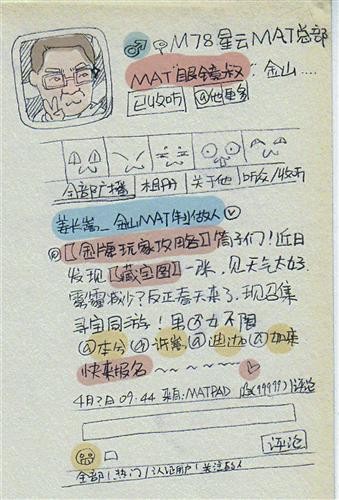 M78星云MAT总部
MAT"眼镜叔" 金山....
已收听 @他更多
全部广播 相册 关于他 听众/收听
姜长嵩_金山MAT制作人
【金牌玩家攻略】筒子们!近日
发现【藏宝图】一张,见天气太好,
雾霾减少?反正春天来了,现召集
寻宝同游!男♂女不限
快来报名~~~~~
4月?日09.44 来自:MATPAD 评论
评论
全部/热门/认证用户/关注的人